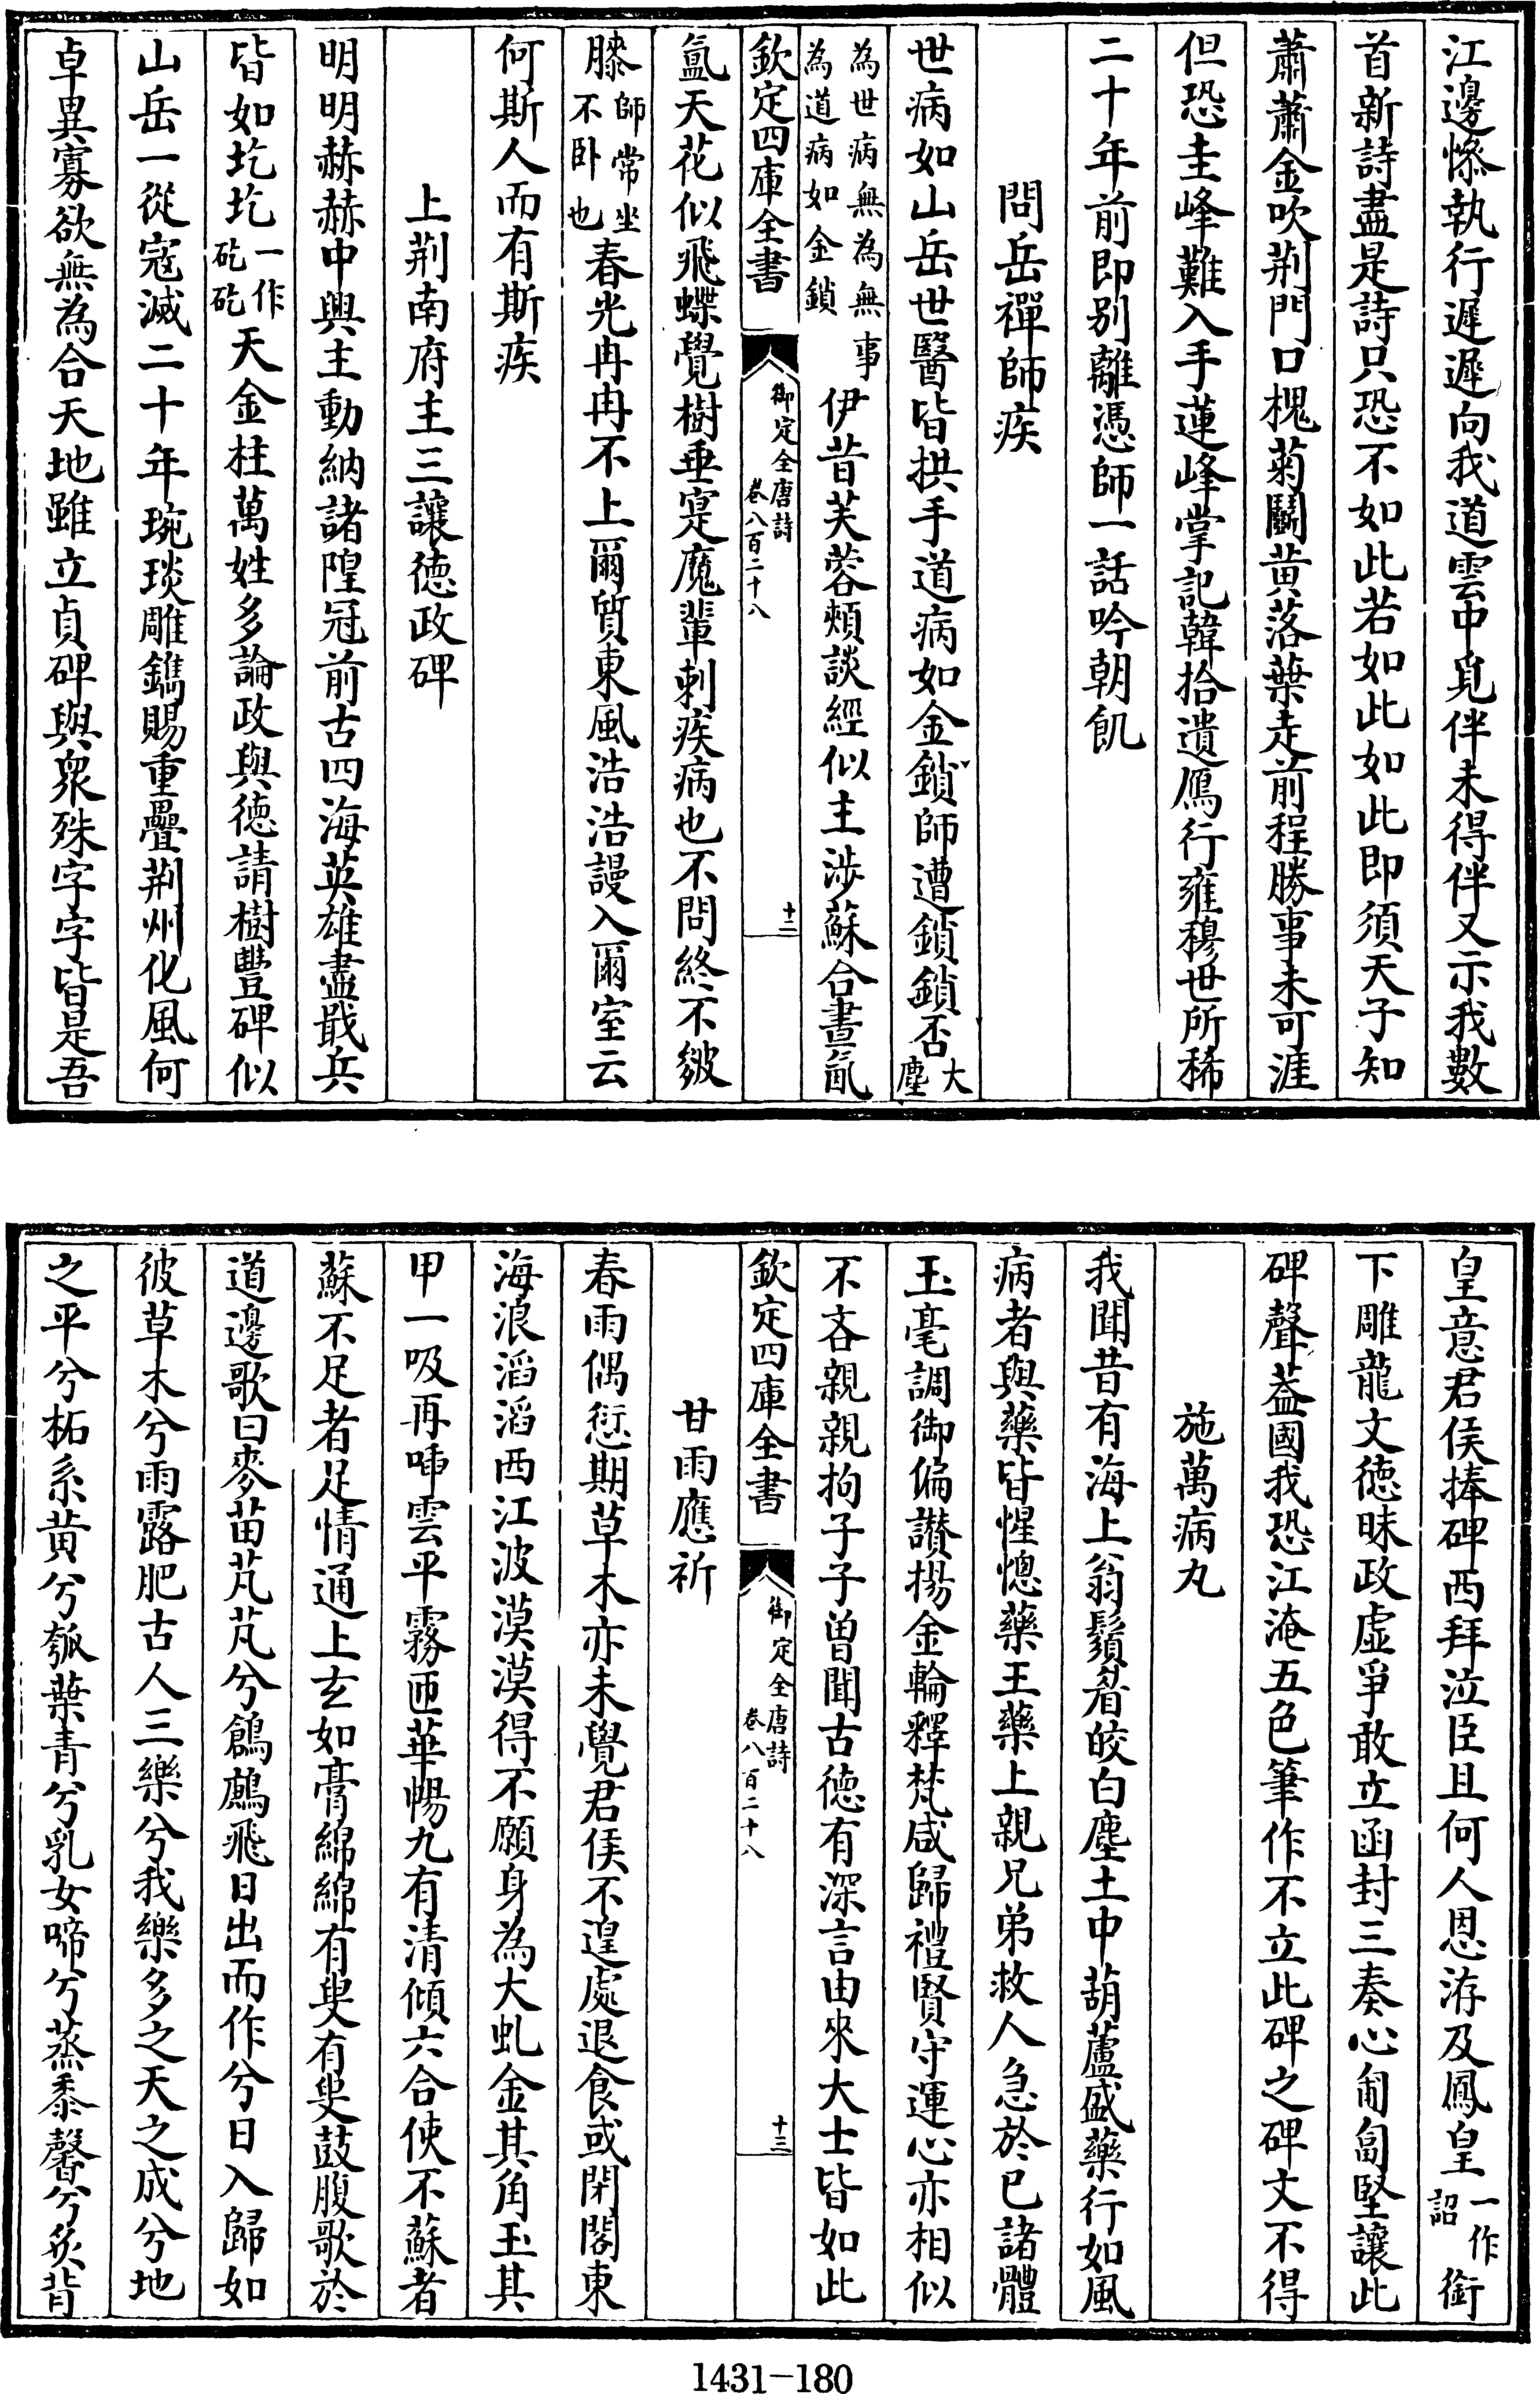 江邊慘執行遲遲向我道雲中覓伴未得伴又示我數
首新詩盡是詩只恐不如此若如此如此即須天子知
蕭蕭金吹荆門口槐菊鬬黄落葉走前程勝事未可涯
但恐圭峰難入手蓮峰掌記韓拾遺鴈行雍穆世所稀
二十年前即别離憑師一話吟朝飢
問岳禪師疾
世病如山岳世醫皆拱手道病如金鎖師遭鎖鎖否大塵
為世病無為無事為道病如金鎖伊昔芙蓉頰談經似主涉蘇合晝氤
欽定四庫全書 御定全唐詩卷八百二十八 十二
氳天花似飛蝶覺樹垂寔魔輩刺疾病也不問終不皴
膝師常坐不卧也春光冉冉不上爾質東風浩浩謾入爾室云
何斯人而有斯疾
上荆南府主三讓德政碑
明明赫赫中興主動納諸隍冠前古四海英雄盡戢兵
皆如圪圪一作矻矻天金柱萬姓多論政與德請樹豐碑似
山岳一從寇滅二十年琬琰雕鐫賜重疊荆州化風何
卓異寡欲無為合天地雖立貞碑與衆殊字字皆是吾
皇意君侯捧碑西拜泣臣且何人恩洊及鳳皇一作詔銜
下雕龍文德昧政虚爭敢立函封三奏心匍匐堅讓此
碑聲葢國我恐江淹五色筆作不立此碑之碑文不得
施萬病丸
我聞昔有海上翁鬚眉皎白塵土中葫蘆盛藥行如風
病者與藥皆惺憁藥王藥上親兄弟救人急於已諸體
玉毫調御偏讚揚金輪釋梵咸歸禮賢守運心亦相似
不吝親親拘子子曽聞古德有深言由來大士皆如此
欽定四庫全書 御定全唐詩卷八百二十八 十三
甘雨應祈
春雨偶愆期草木亦未覺君侯不遑處退食或閉閣東
海浪滔滔西江波漠漠得不願身為大虬金其角玉其
甲一吸再㖷雲平霧匝華暢九有清傾六合使不蘇者
蘇不足者足情通上玄如膏綿綿有叟有叟鼓腹歌於
道邊歌曰麥苗芃芃兮鶬鷓飛日出而作兮日入歸如
彼草木兮雨露肥古人三樂兮我樂多之天之成兮地
之平兮柘系黄兮瓠葉青兮乳女啼兮蒸黍馨兮炙背
1431-180